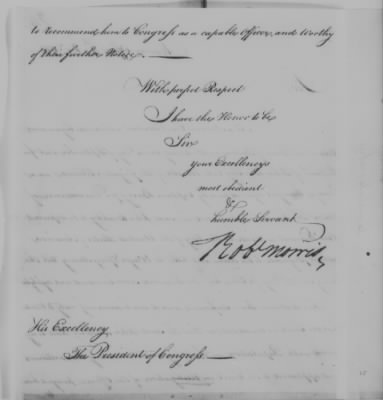 to recommend him to Congress as a capable Officer, and Worthy
of their further Notice. —
With perfect Respect
I have the Honor to be
Sir
your Excellency's
most obedient
&
humble Servant
Rob Morris
His Excellency
The President of Congress —